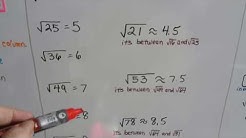 column
√25 = 5
√36 = 6
√49 = 7
8
√21 ≈ 4.5
its between √16 and √25
√53 ≈ 7.5
its between √49 and √64
√78 ≈ 8.5
its between